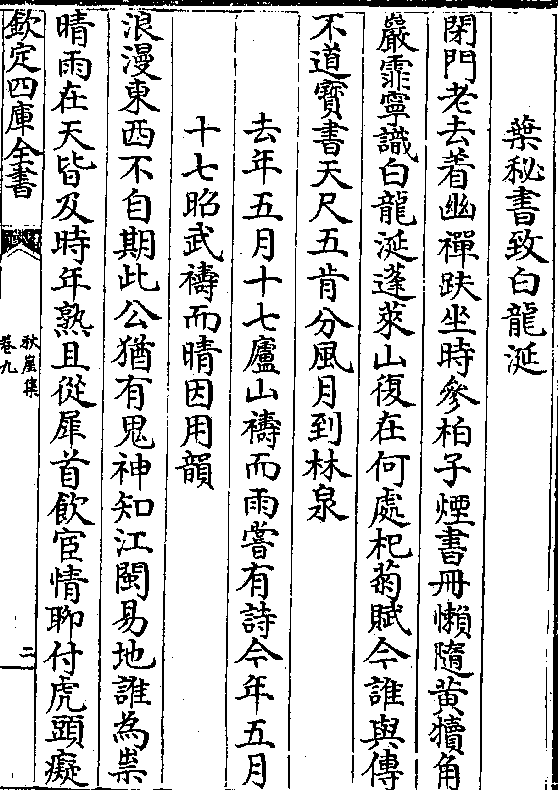 葉秘書致白龍涎
閉門老去着幽禪趺坐時參柏子煙書冊懶隨黄犢角
嚴霏寧識白龍涎蓬萊山復在何處杞菊賦今誰與傳
不道寶書天尺五肯分風月到林泉
去年五月十七廬山禱而雨嘗有詩今年五月
十七昭武禱而晴因用韻
浪漫東西不自期此公猶有鬼神知江閩易地誰為祟
晴雨在天皆及時年熟且從犀首飲宦情聊付虎頭癡
欽定四庫全書
秋崖集
卷九
二